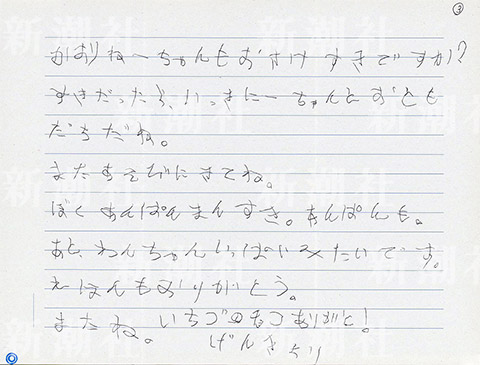 ③
かおりねーちゃんもおさけすきですか?
すきだったら、いっきにーちゃんとおとも
だちだね。
またあそびにきてね。
ぼくあんぱんまんすき。あんぱんも。
あと、わんちゃんいっぱいみたいです。
えほんもありがとう。
またね。いちごのもつありがと!
げんき より
新潮社